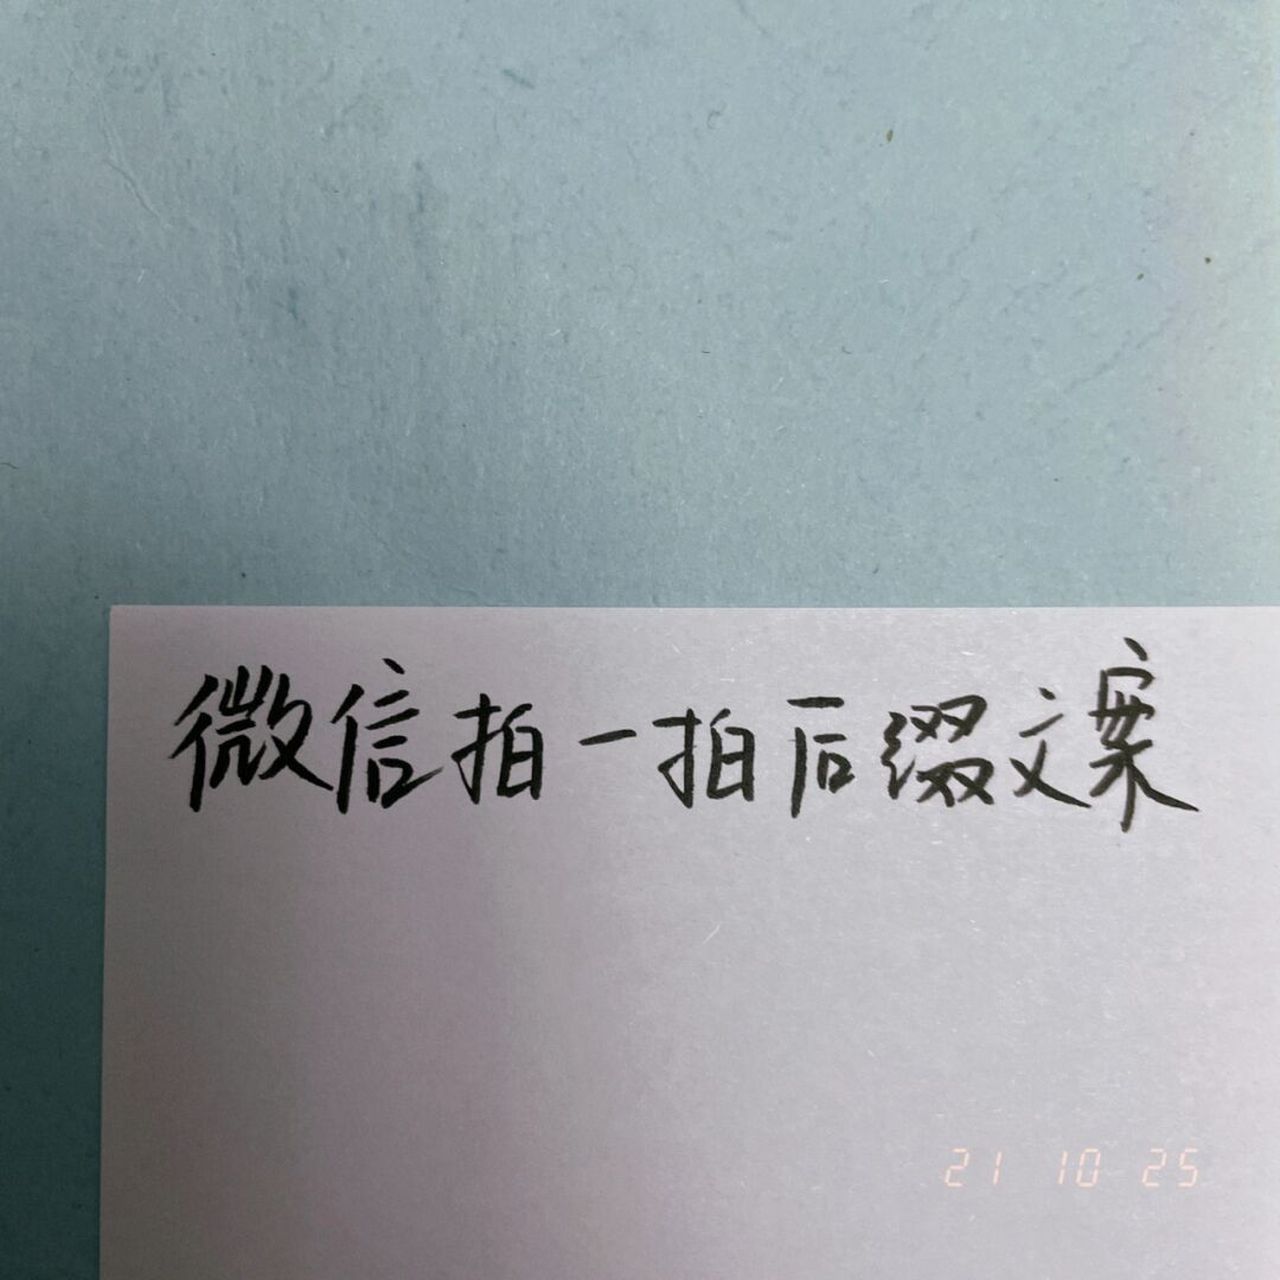 微信拍一拍后缀文案
21 10 25